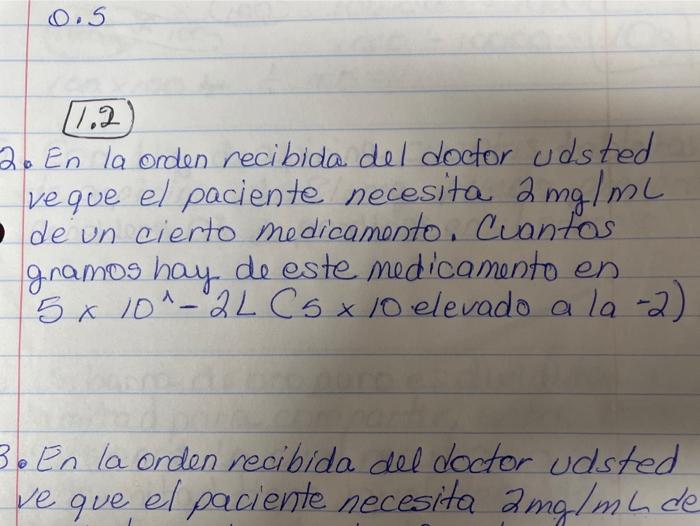 0.5
1.2
2. En la orden recibida del doctor udsted
ve que el paciente necesita 2mg/mL
de un cierto medicamento. Cuantos
gramos hay de este medicamento en
5 x 10^-2L (5 x 10 elevado a la -2)
3. En la orden recibida del doctor udsted
ve que el paciente necesita 2mg/mL de